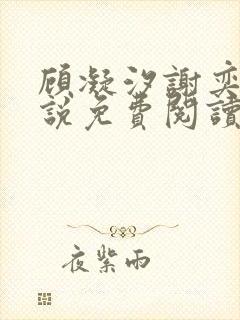 顾凝汐謝奕
説免費閱讀
夜紫雨